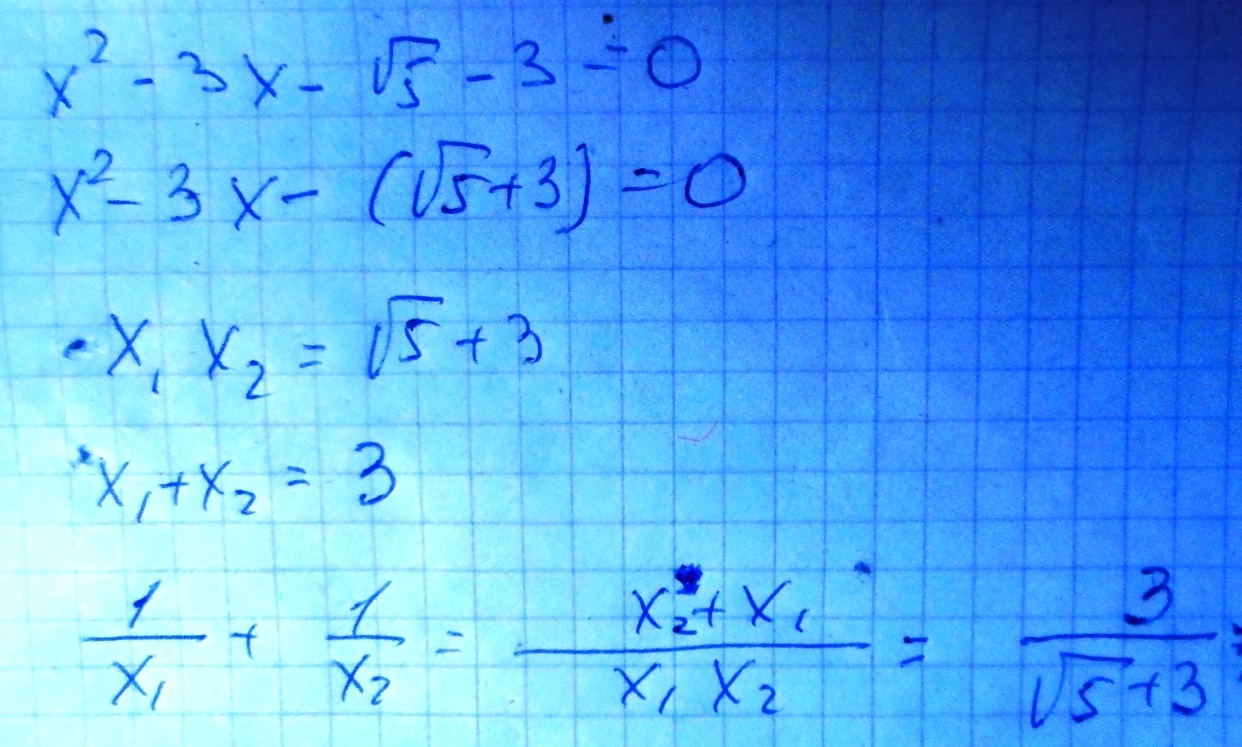 x² - 3x - √5 - 3 = 0
x² - 3x - (√5+3) = 0
• x₁ x₂ = √5 + 3
• x₁ + x₂ = 3
1/x₁ + 1/x₂ = (x₂ + x₁)/(x₁ x₂) = 3/(√5+3) =